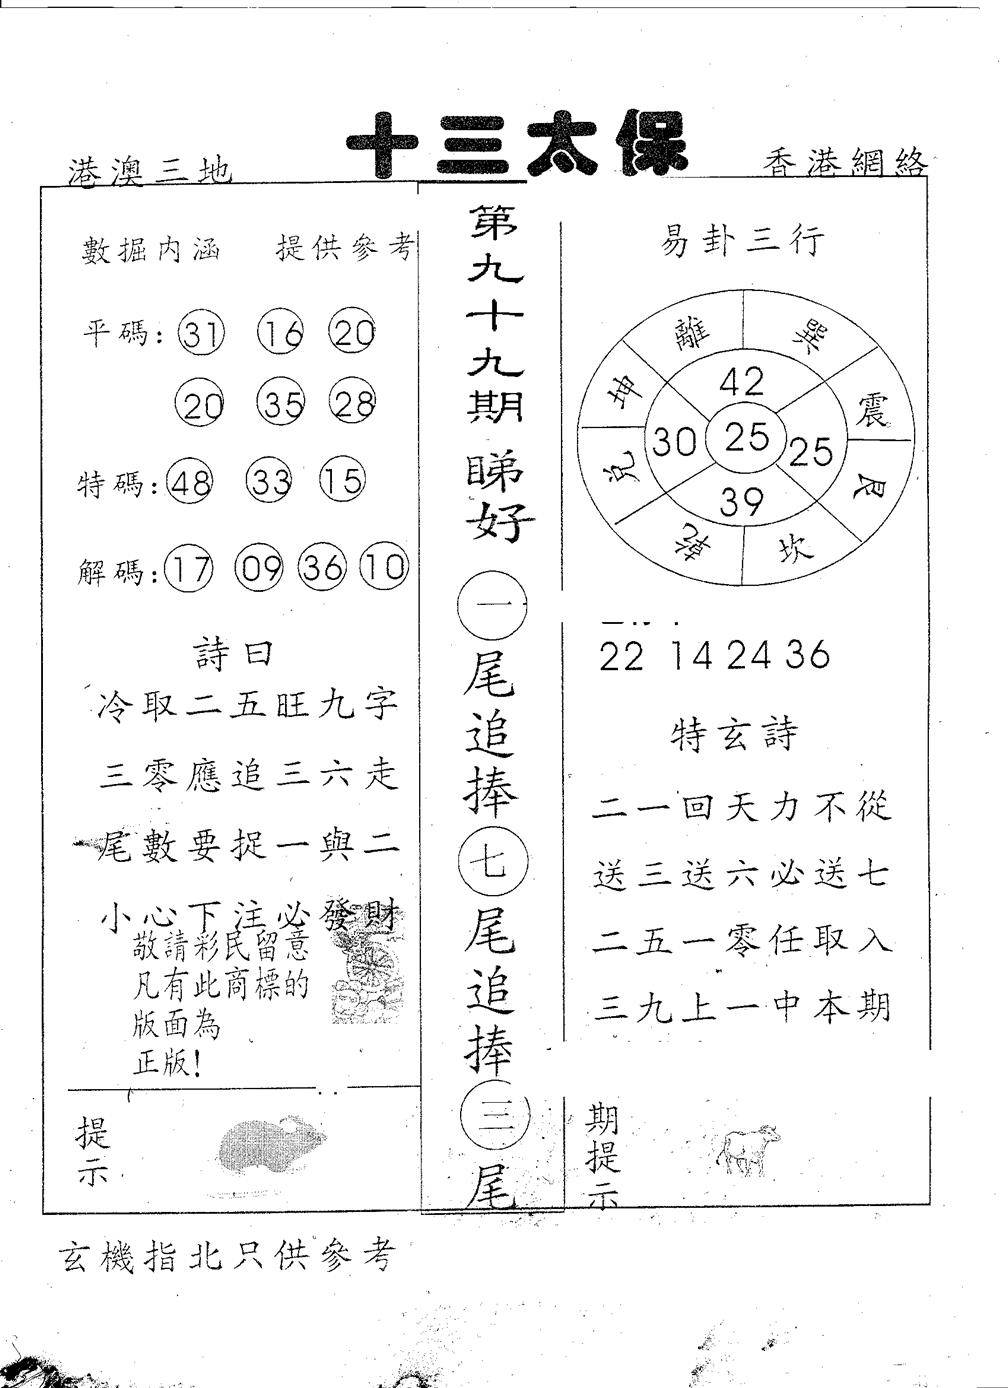 十三太保
港澳三地
香港網絡
數掘内涵 提供參考
平碼: 31 16 20
20 35 28
特碼: 48 33 15
解碼: 17 09 36 10
詩曰
冷取二五旺九字
三零應追三六走
尾數要捉一與二
小心下注必發財
敬請彩民留意
凡有此商標的
版面為
正版!
提示
第九十九期睇好
一尾追捧七尾追捧三尾
易卦三行
離 巽
坤 震
兌 艮
乾 坎
42
30 25 25
39
22 14 24 36
特玄詩
二一回天力不從
送三送六必送七
二五一零任取入
三九上一中本期
期提示
玄機指北只供參考